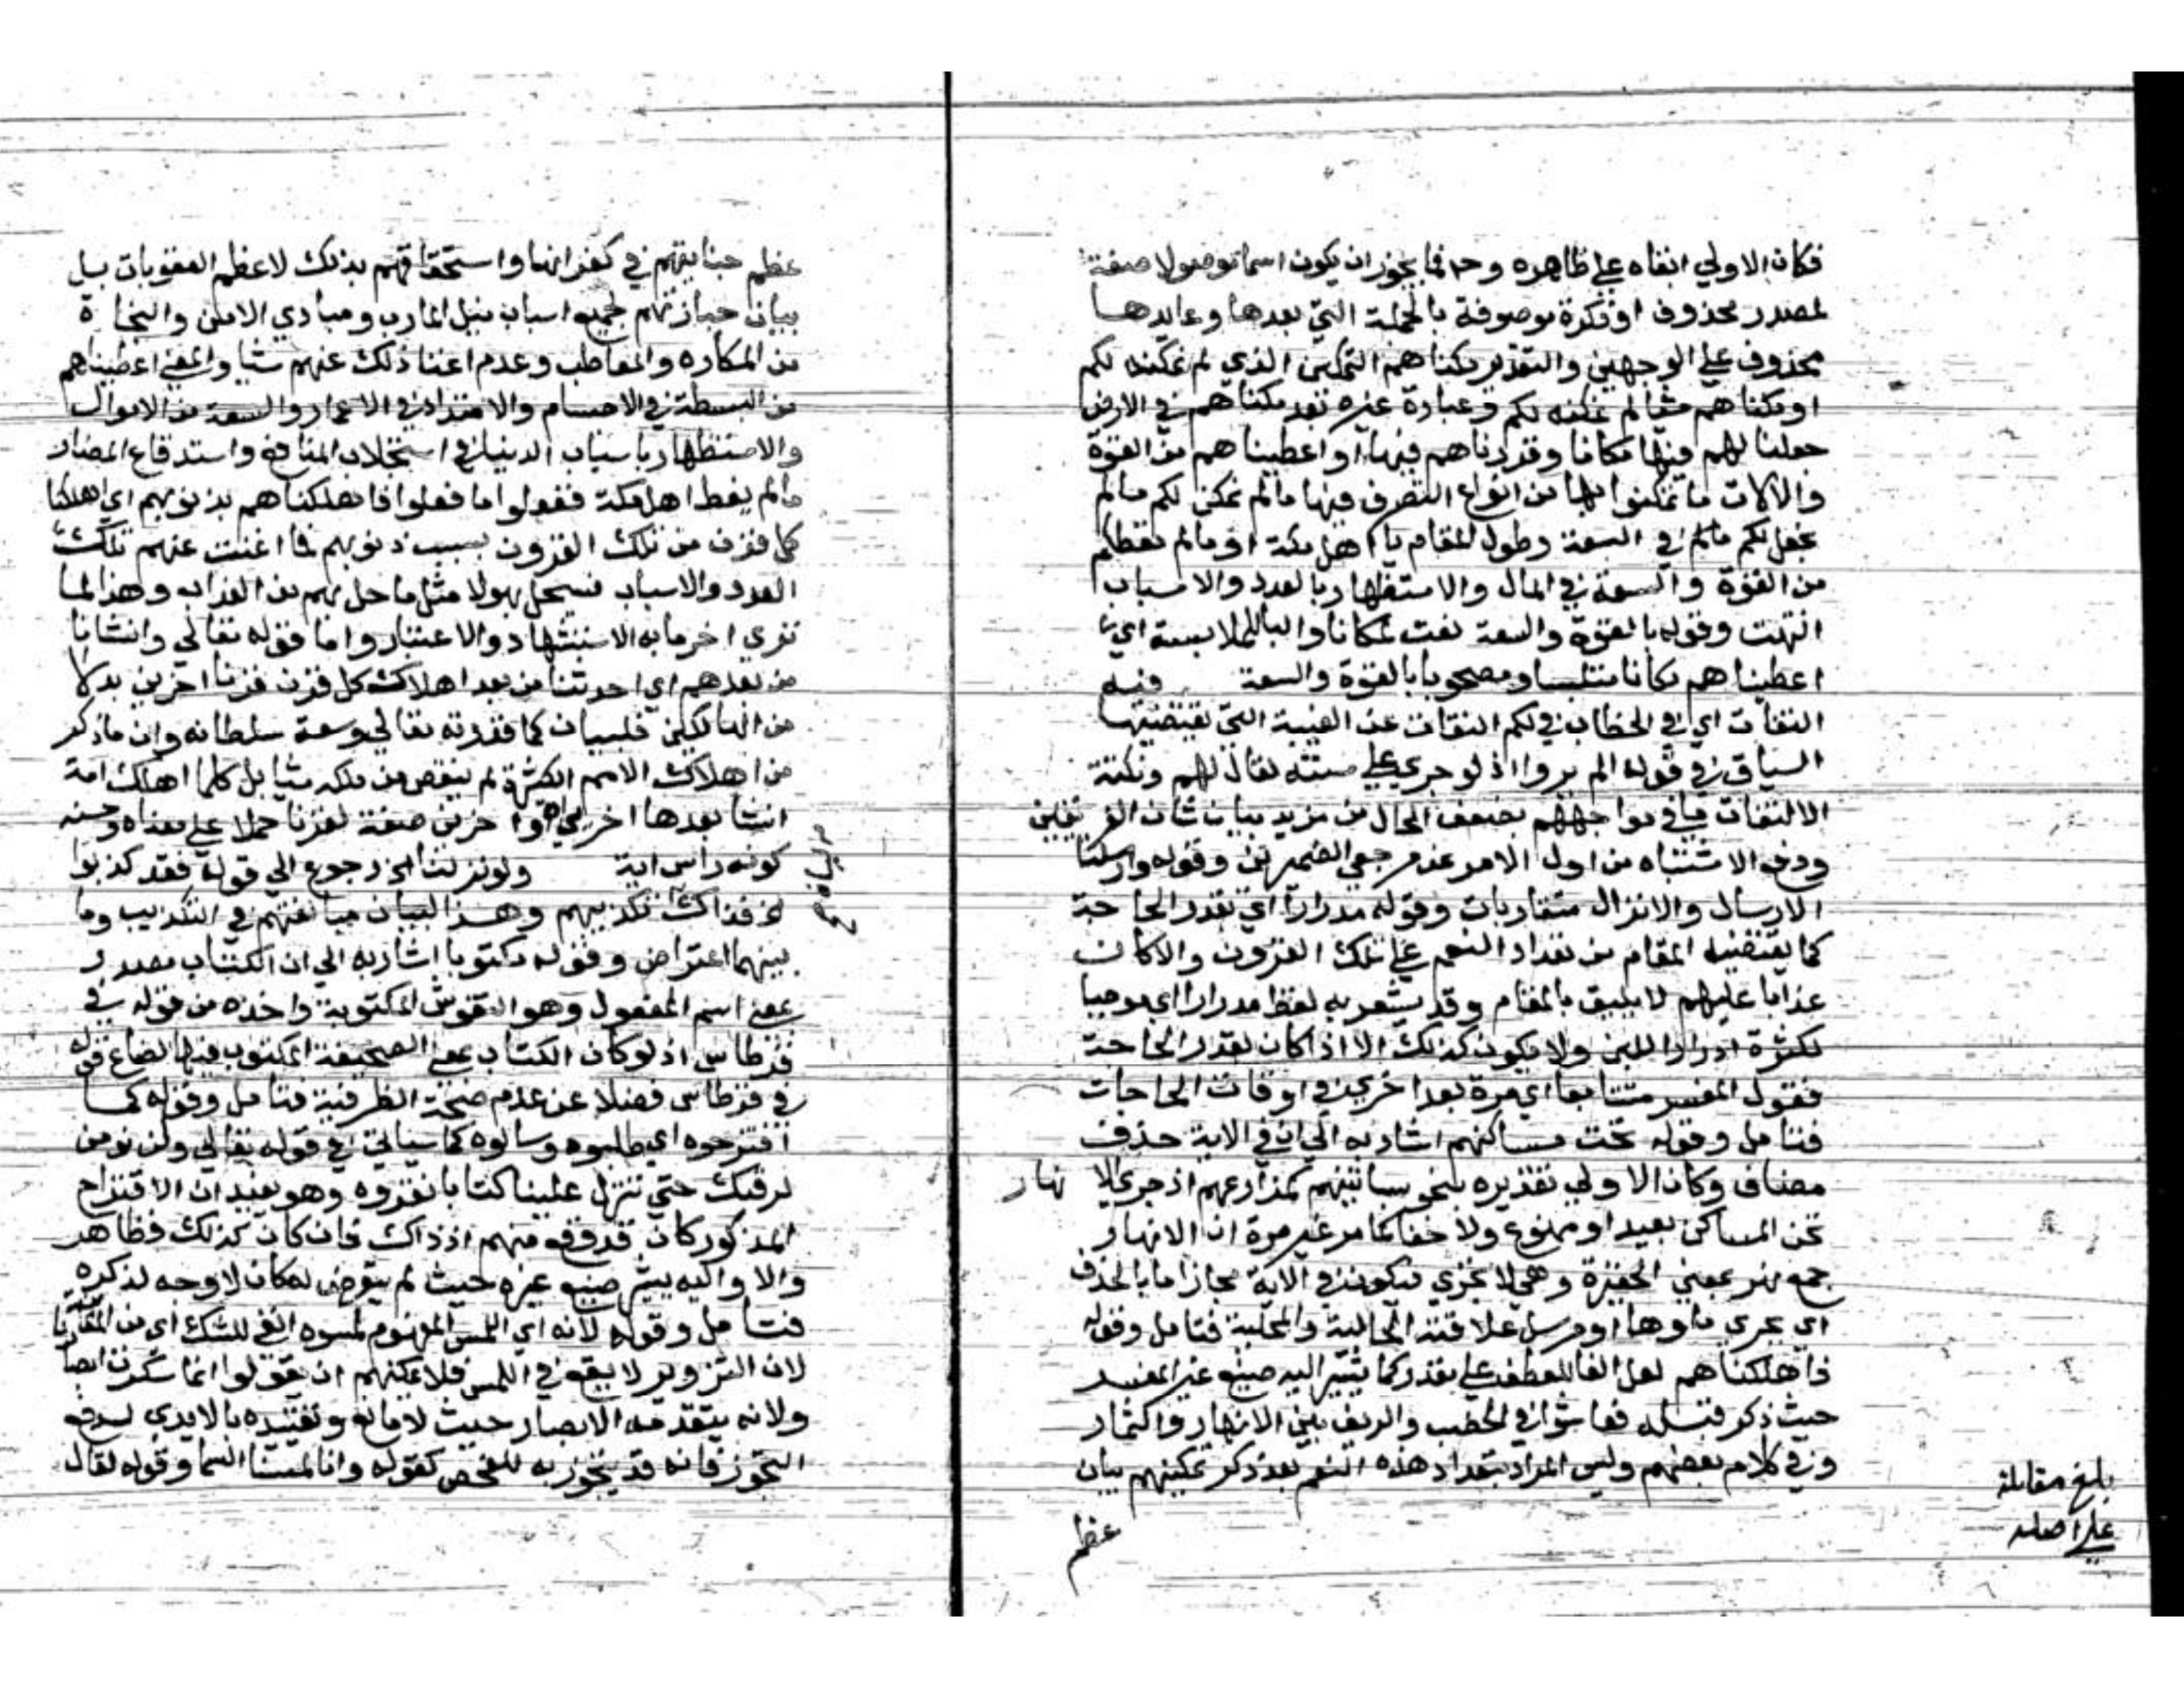 فكان الاولي ابقاه علي ظاهره وح فما يجوز ان يكون اسما موصولا صفة
لمصدر محذوف او نكرة موصوفة بالجملة التي بعدها وعايدها
محذوف علي الوجهين والتقدير مكناهم التمكين الذي لم نمكنه لكم
او مكناهم شيا لم نمكنه لكم وعبارة غيره نعد مكناهم في الارض
جعلنا لهم فيها مكانا وقررناهم فيها او اعطيناهم من القوة
والالات ما تمكنوا بها من انواع التصرف فيها مالم نمكن لكم مالم
نجعل لكم مالم في السعة وطول المقام يا اهل مكة او مالم نعطكم
من القوة والسعة في المال والاستظهار بالعدد والاسباب
انتهت وقوله بالقوة والسعة نعت لمكانا والبا للملابسة اي
اعطيناهم مكانا متلبسا ومصحوبا بالقوة والسعة فيه
التفات اي في الخطاب في لكم التفات عن الغيبة التي يقتضيها
السياق في قوله الم يروا اذ لو جري علي سننه لقال لهم ونكتة
الالتفات ما في مواجهتهم بضعف الحال من مزيد بيان شان الفريقين
ودفع الاشتباه من اول الامر عند مرجعي الضميرين وقوله وارسلنا
الارسال والانزال متقاربان وقوله مدرارا اي بقدر الحاجة
كما يقتضيه المقام من تعداد النعم علي تلك القرون والا كان
عذابا عليهم لا يليق بالمقام وقد يشعر به لفظ مدرارا اي موجبا
لكثرة ادرار اللبن ولا يكون كذلك الا اذا كان بقدر الحاجة
فقول المفسر متتابعا اي مرة بعد اخري في اوقات الحاجات
فتامل وقوله تحت مساكنهم اشار به الي ان في الاية حذف
مضاف وكان الاولي تقديره بنحو بساتينهم كمزارعهم اذ جري الا نهار
تحت المساكن بعيد او ممنوع ولا خفا كما مر غير مرة ان الانهار
جمع نهر بمعني الحفرة وهي لا تجري فيكون في الاية مجاز اما بالحذف
اي يجري ماوها او مرسل علاقته الحالية والمحلية فتامل وقوله
فاهلكناهم لعل الفا للعطف علي مقدر كما يشير اليه صنيع غير المفسر
حيث ذكر قبله فعاشوا في الخصب والريف بين الانهار والثمار
وفي كلام بعضهم وليس المراد بتعداد هذه النعم بعد ذكر تمكينهم بيان
عظم
بلغ مقابلة
علي اصله
عظم جنايتهم في كفرانها واستحقاقهم بذلك لاعظم العقوبات بل
بيان حيازتهم لجميع اسباب نيل المارب ومبادي الامن والنجاة
من المكاره والمعاطب وعدم اغنا ذلك عنهم شيا والمعني اعطيناهم
من البسطة في الاجسام والامتداد في الاعمار والسعة من الاموال
والاستظهار باسباب الدنيا في استجلاب المنافع واستدفاع المضار
مالم يعط اهل مكة ففعلوا ما فعلوا فاهلكناهم بذنوبهم اي اهلكنا
كل قرن من تلك القرون بسبب ذنوبهم فما اغنت عنهم تلك
العدد والاسباب فسيحل بهولا مثل ما حل بهم من العذاب وهذا لما
تري اخر ما به الاستشهاد والاعتبار واما قوله تعالي وانشانا
من بعدهم اي احدثنا من بعد اهلاك كل قرن قرنا اخرين بدلا
من الهالكين فلبيان كمال قدرته تعالي وسعة سلطانه وان ما ذكر
من اهلاك الامم الكثيرة لم ينقص من ملكه شيا بل كلما اهلك امة
انشا بعدها اخري واخرين صفة لقرنا حملا علي معناه وحسنه
كونه راس اية ولو نزلنا الخ رجوع الي قوله فقد كذبوا
الخ فذاك تكذيبهم وهذا لبيان مبالغتهم في التكذيب وما
بينهما اعتراض وقوله مكتوبا اشار به الي ان الكتاب مصدر
بمعني اسم المفعول وهو النقوش المكتوبة واخذه من قوله في
قرطاس اذ لو كان الكتاب بمعني الصحيفة المكتوب فيها لضاع قوله
في قرطاس فضلا عن عدم صحة الظرفية فتامل وقوله كما
اقترحوه اي طلبوه وسالوه كما سياتي في قوله تعالي ولن نومن
لرقيك حتي تنزل علينا كتابا نقروه وهو يفيد ان الاقتراح
المذكور كان قد وقع منهم اذ ذاك فان كان كذلك فظاهر
والا واليه يشير صنيع غيره حيث لم يتعرض له كان لا وجه لذكره
فتامل وقوله لانه اي اللمس المفهوم لمسوه انفي للشك اي من المعاينة
لان التزوير لا يقع في اللمس فلا يمكنهم ان يقولوا انما سكرت ابصارنا
ولانه يتقدمه الابصار حيث لا مانع وتقييده بالايدي لدفع
التجوز فانه قد يتجوز به للفحص كقوله وانا لمسنا السما وقوله لقال